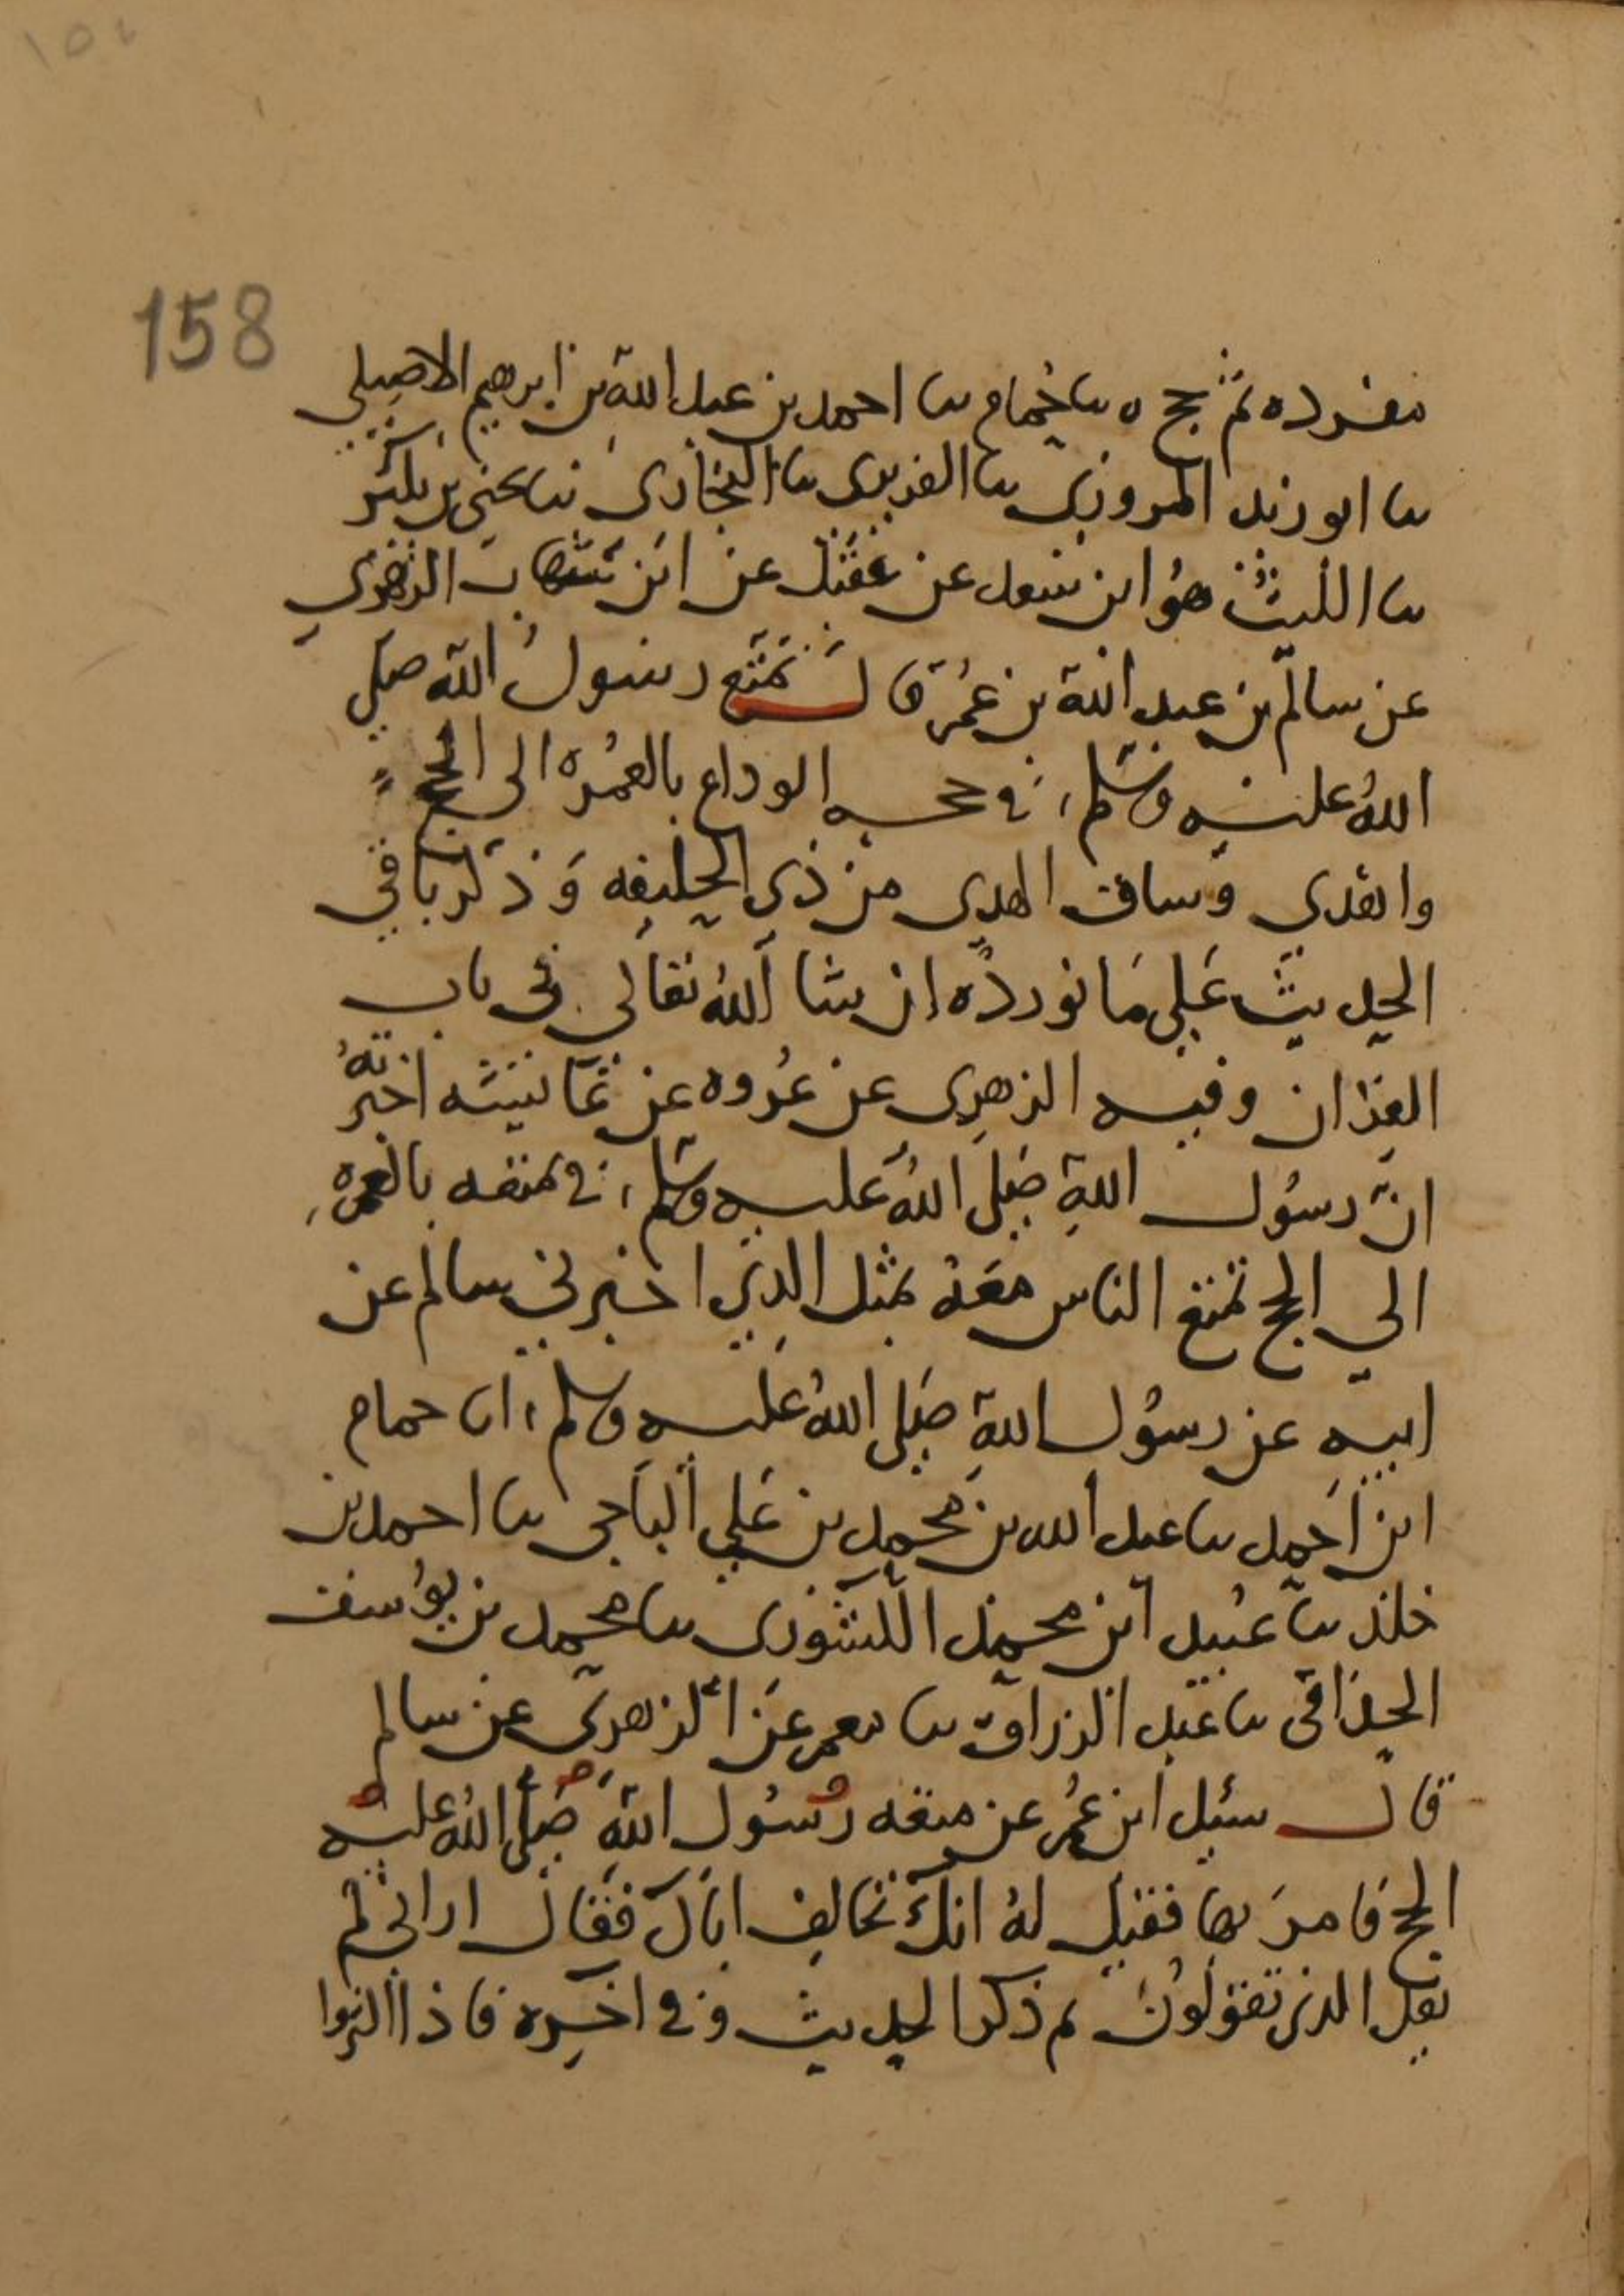 158
مفرده ثم حج ه نا حمام نا احمد بن عبد الله بن ابرهيم الاصيلي
نا ابو زيد المروزي نا الفربري نا البخاري نا يحيى بن بكير
نا الليث هو ابن سعد عن عقيل عن ابن شهاب الزهري
عن سالم بن عبد الله بن عمر قال تمتع رسول الله صلى
الله عليه وسلم في حجه الوداع بالعمره الى الحج
واهدى وساق الهدى من ذي الحليفه وذكر باقي
الحديث على ما نورده ان شا الله تعالى في باب
القران وفيه الزهري عن عروه عن عائشه اخبرته
ان رسول الله صلى الله عليه وسلم في تمتعه بالعمره
الي الحج تمتع الناس معه بمثل الذي اخبرني سالم عن
ابيه عن رسول الله صلى الله عليه وسلم انا حمام
ابن احمد نا عبد الله بن محمد بن علي الباجي نا احمد بن
خالد نا عبيد ابن محمد الكشوري نا محمد بن يوسف
الحذاقي نا عبد الرزاق نا معمر عن الزهري عن سالم
قال سئل ابن عمر عن متعه رسول الله صلى الله عليه
الحج فامر بها فقيل له انك تخالف اباك فقال ان ابي لم
يقل الذي تقولون ثم ذكر الحديث وفي اخره فاذا اكثروا